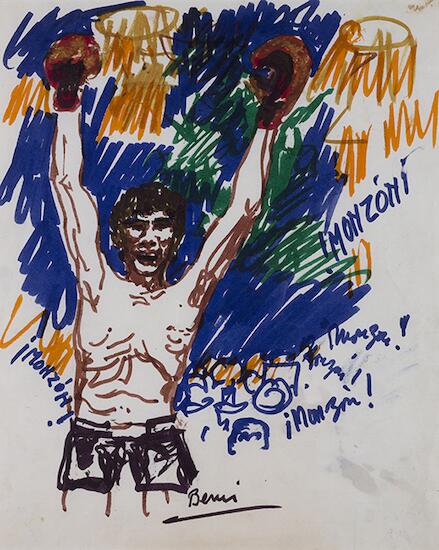 ¡MONZÓN!
¡MONZÓN!
¡Monzón!
¡Monzón!
Berni